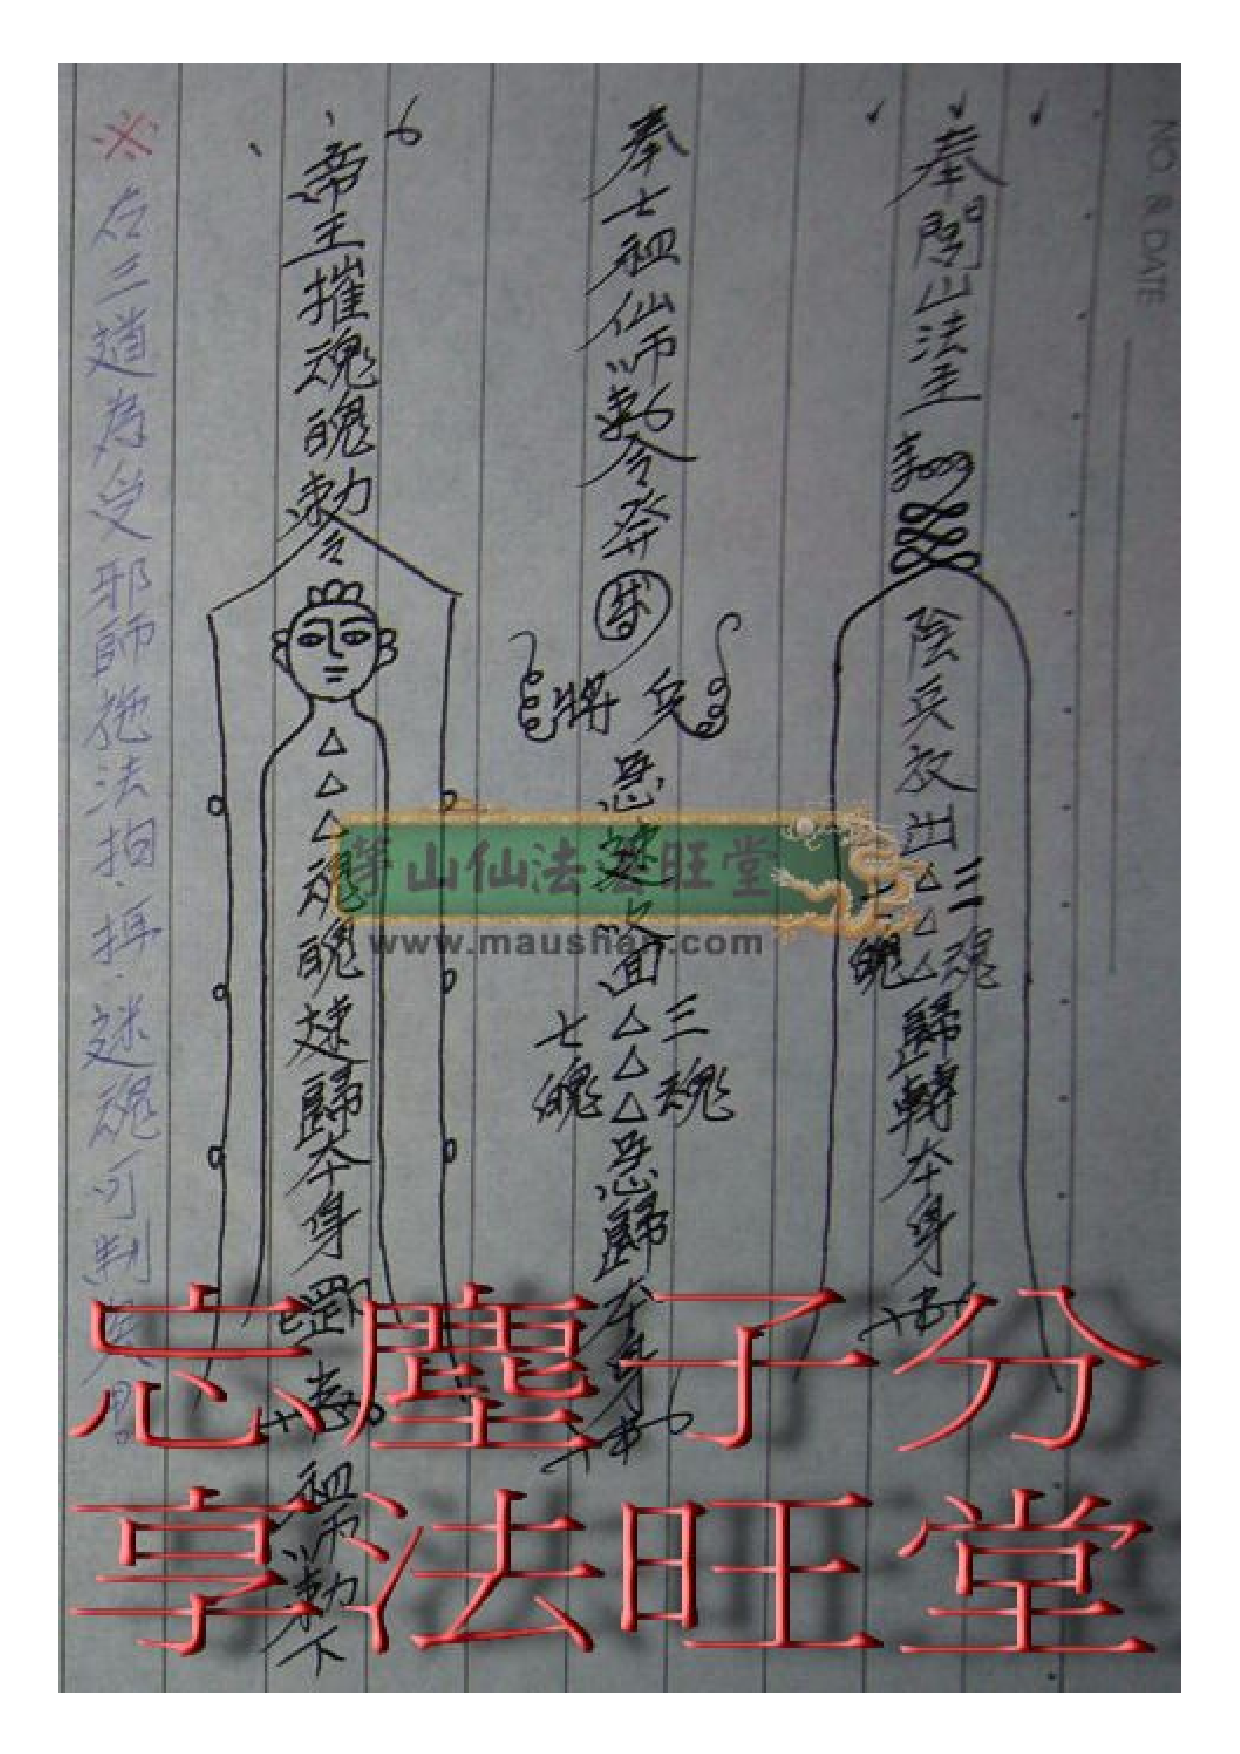 NO. & DATE
奉閭山法主
陰兵放出△△△歸轉本身
三魂
七魄
奉七祖仙師勅令發
將 兵
急速追△△△急歸本身
三魂
七魄
帝王摧魂魄勅令
△△△魂魄速歸本身罡
祖師勅下
※右三道為受邪師施法拍.抓.迷魂可制
茅山仙法 法旺堂
www.maushan.com
忘塵子分
享法旺堂